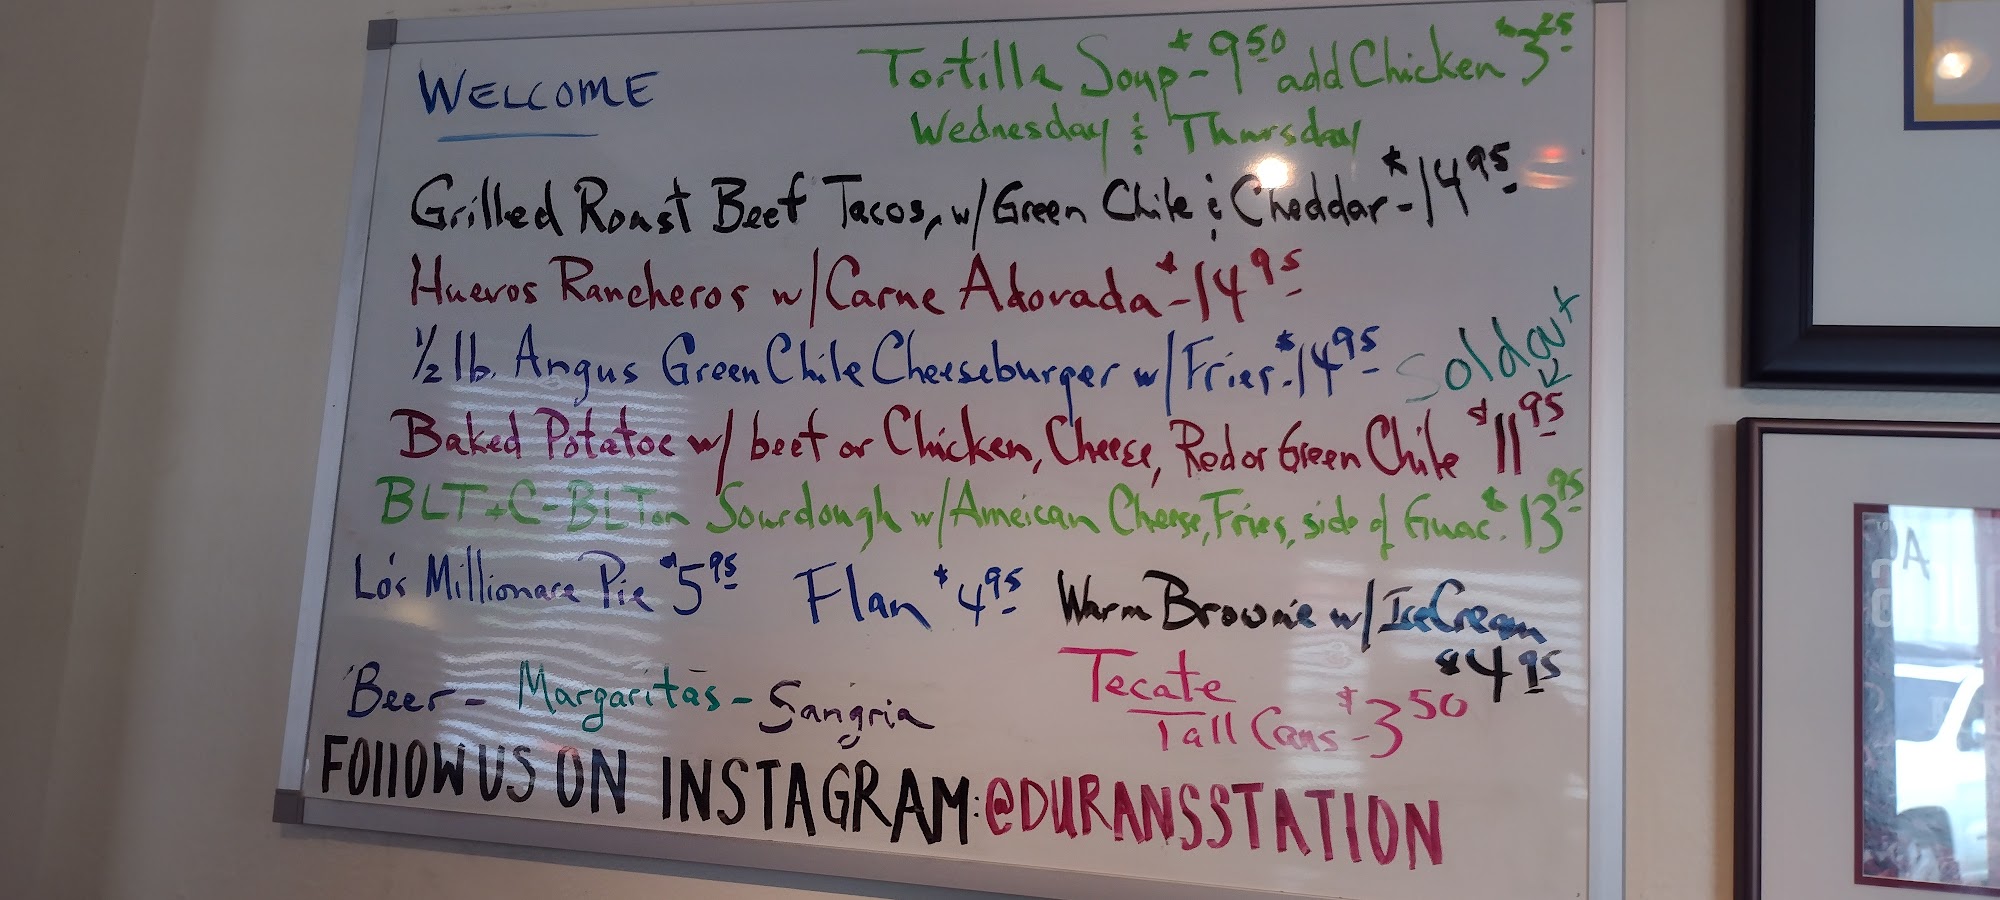 WELCOME
Tortilla Soup - $9.50 add Chicken $3.25
Wednesday & Thursday
Grilled Roast Beef Tacos, w/Green Chile & Cheddar - $14.95
Huevos Rancheros w/Carne Adovada - $14.95
1/2 lb. Angus Green Chile Cheeseburger w/Fries - $14.95
Soldout
Baked Potatoe w/ beef or Chicken, Cheese, Red or Green Chile $11.95
BLT+C-BLT on Sourdough w/Ameican Cheese, Fries, side of Guac. $13.95
Lo's Millionare Pie $5.95 Flan $4.95 Warm Brownie w/IceCream
$4.95
Beer - Margaritas - Sangria
Tecate
Tall Cans - $3.50
FOllOW US ON INSTAGRAM: @DURANSSTATION